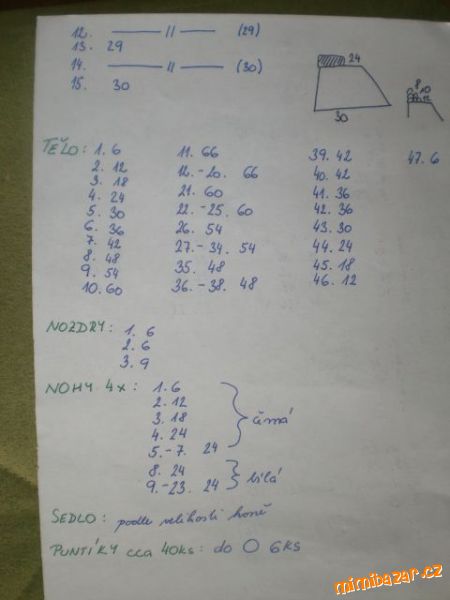 12. —— 11 —— (29)
13. 29
14. —— 11 —— (30)
15. 30
24
30
8
TĚLO: 1. 6 11. 66 39. 42 47. 6
2. 12 12.-20. 66 40. 42
3. 18 21. 60 41. 36
4. 24 22.-25. 60 42. 36
5. 30 26. 54 43. 30
6. 36 27.-34. 54 44. 24
7. 42 35. 48 45. 18
8. 48 36.-38. 48 46. 12
9. 54
10. 60
NOZDRY: 1. 6
2. 6
3. 9
NOHY 4x: 1. 6
2. 12
3. 18
4. 24
5.-7. 24
černá
8. 24
9.-23. 24
bílá
SEDLO: podle velikosti koně
PUNTÍKY cca 40ks: do O 6ks
mimibazar.cz